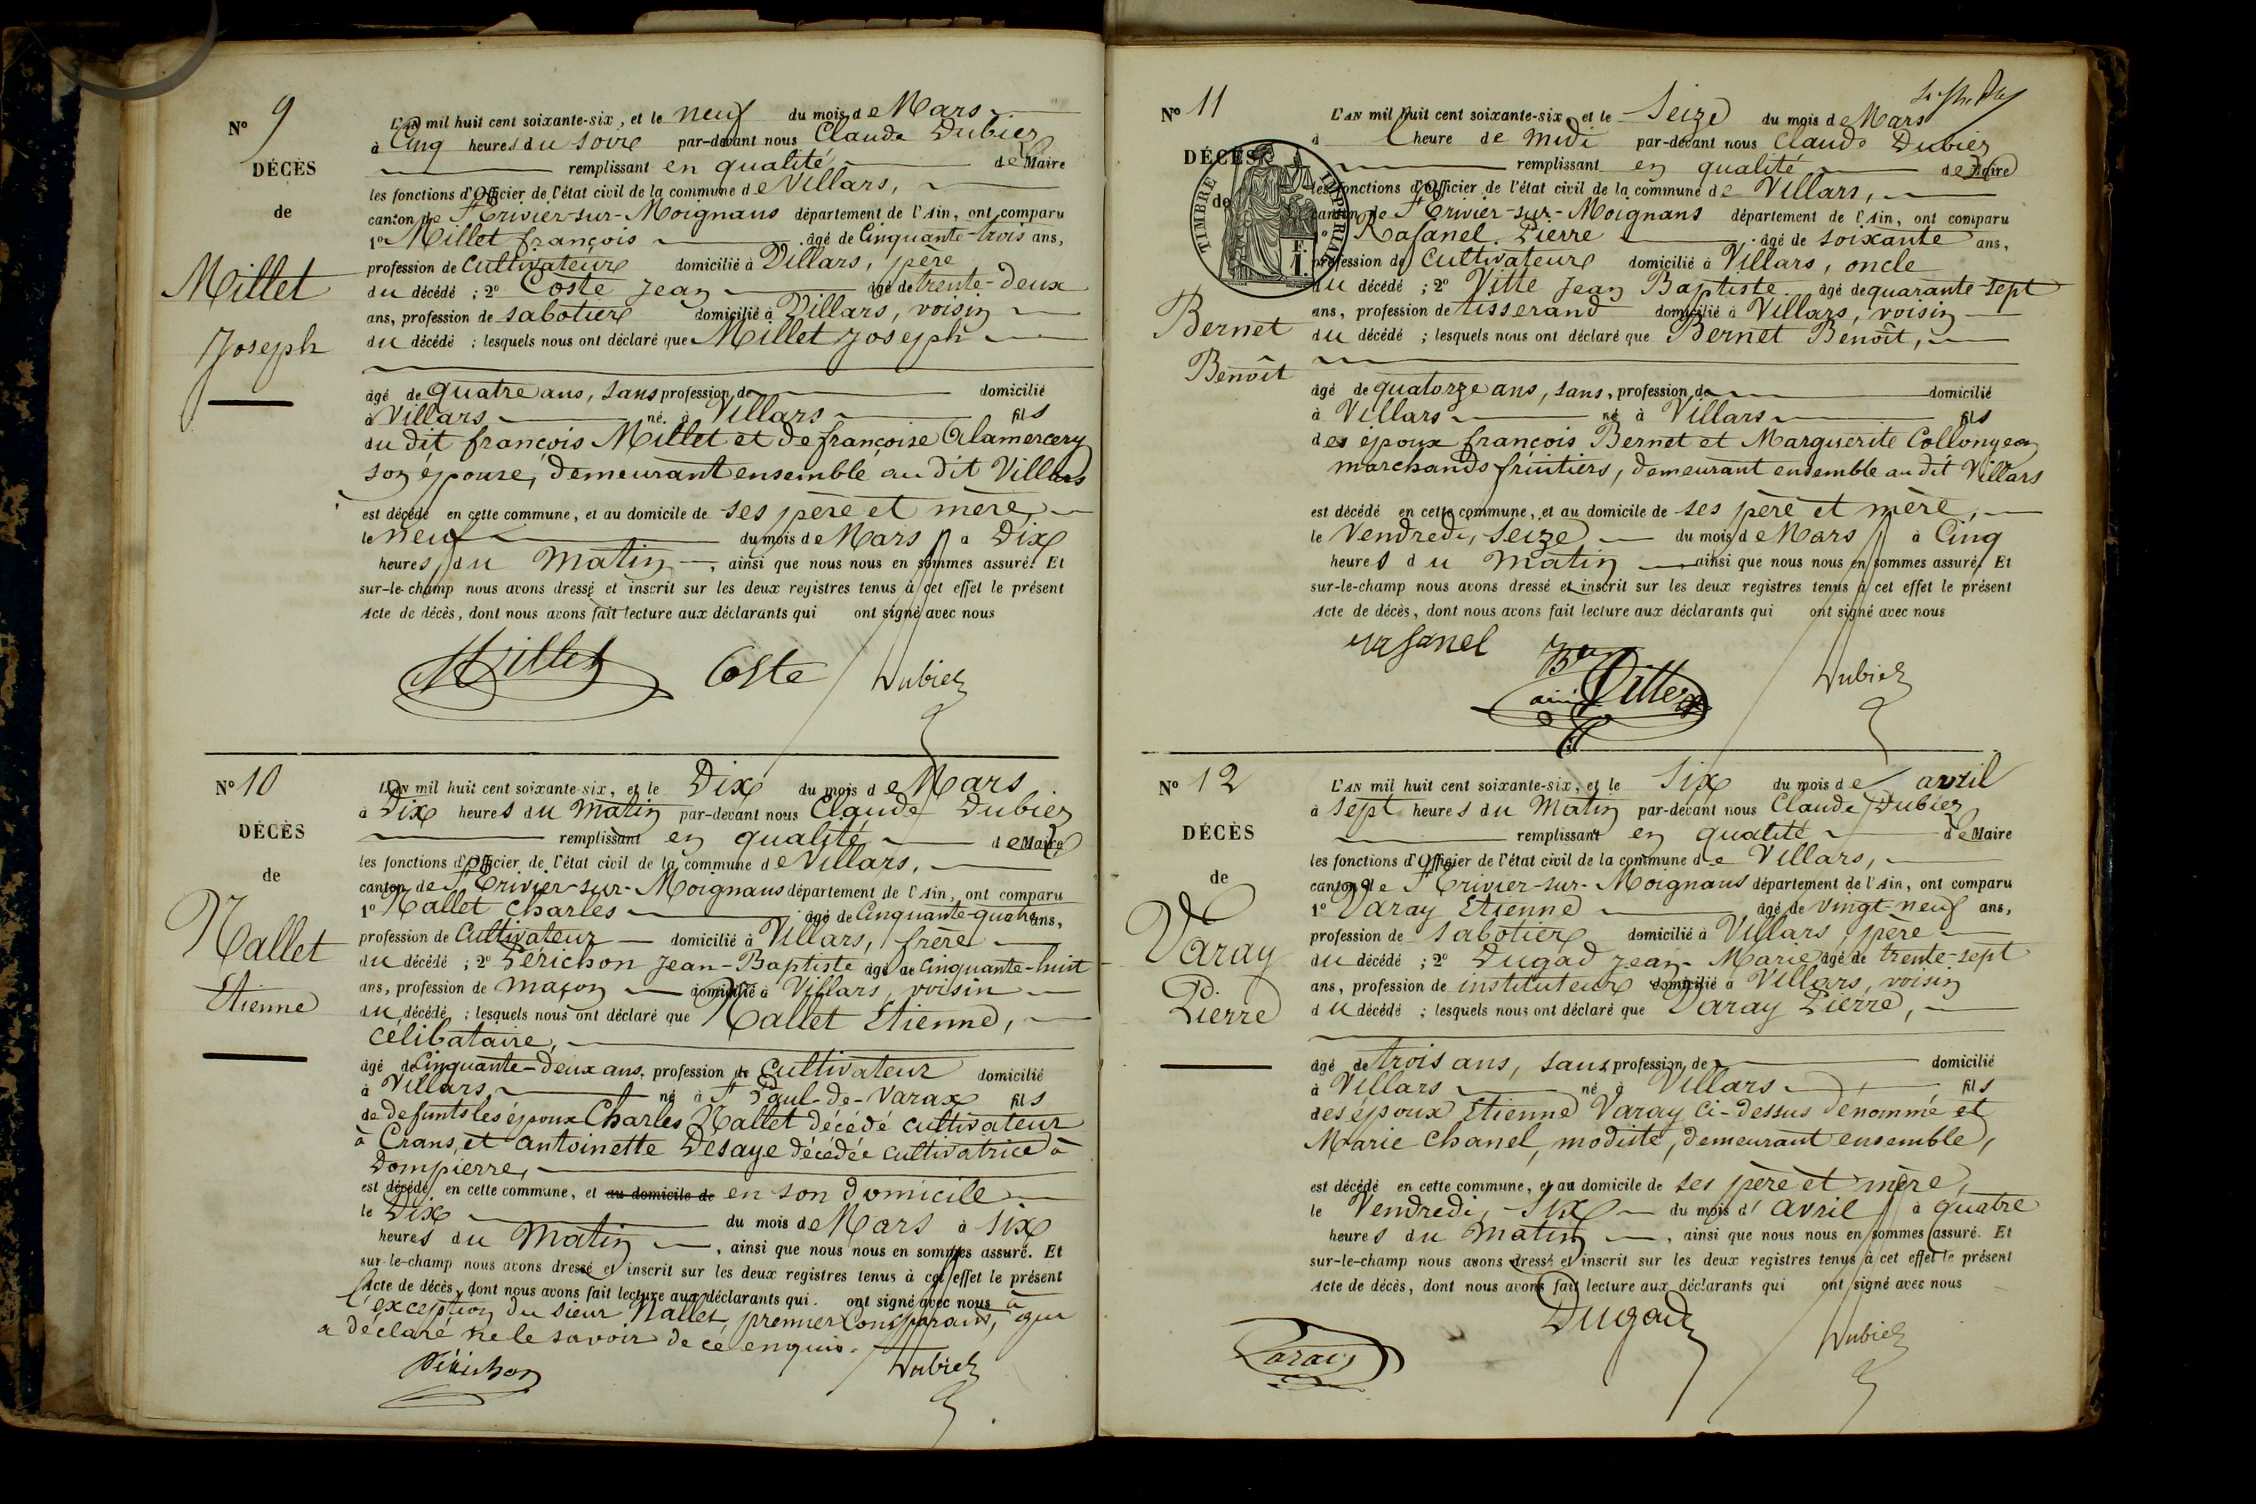 N° 9
DÉCÈS
de
Millet
Joseph
L'AN mil huit cent soixante-six, et le neuf du mois de Mars
à Cinq heures du soir par-devant nous Claude Dubiez
remplissant en qualité de Maire
les fonctions d'Officier de l'état civil de la commune de Villars,
canton de St Trivier-sur-Moignans département de l'Ain, ont comparu
1° Millet françois âgé de Cinquante-trois ans,
profession de Cultivateur domicilié à Villars, père
du décédé ; 2° Coste Jean âgé de trente-deux
ans, profession de sabotier domicilié à Villars, voisin
du décédé ; lesquels nous ont déclaré que Millet Joseph
âgé de quatre ans, sans profession de domicilié
à Villars né à Villars fils
du dit françois Millet et de françoise Alamercery
son épouse, demeurant ensemble au dit Villars
est décédé en cette commune, et au domicile de ses père et mère,
le neuf du mois de Mars à Dix
heures du Matin, ainsi que nous nous en sommes assuré. Et
sur-le-champ nous avons dressé et inscrit sur les deux registres tenus à cet effet le présent
Acte de décès, dont nous avons fait lecture aux déclarants qui ont signé avec nous
Millet Coste Dubiez
N° 10
DÉCÈS
de
Nallet
Etienne
L'AN mil huit cent soixante-six, et le Dix du mois de Mars
à Dix heures du Matin par-devant nous Claude Dubiez
remplissant en qualité de Maire
les fonctions d'Officier de l'état civil de la commune de Villars,
canton de St Trivier-sur-Moignans département de l'Ain, ont comparu
1° Nallet Charles âgé de Cinquante-quatre ans,
profession de Cultivateur domicilié à Villars, frère
du décédé ; 2° Perichon Jean-Baptiste âgé de Cinquante-huit
ans, profession de maçon domicilié à Villars, voisin
du décédé ; lesquels nous ont déclaré que Nallet Etienne,
célibataire,
âgé de Cinquante-deux ans, profession de Cultivateur domicilié
à Villars né à St Paul-de-Varax fils
de defunts les époux Charles Nallet décédé cultivateur
à Crans, et antoinette Desaye décédée cultivatrice à
Dompierre,
est décédé en cette commune, et au domicile de en son domicile
le Dix du mois de Mars à six
heures du Matin, ainsi que nous nous en sommes assuré. Et
sur-le-champ nous avons dressé et inscrit sur les deux registres tenus à cet effet le présent
Acte de décès, dont nous avons fait lecture aux déclarants qui ont signé avec nous à
l'exception du sieur Nallet, premier Comparant, qui
a déclaré ne le savoir de ce enquis.
Périchon Dubiez
N° 11
DÉCÈS
de
TIMBRE IMPÉRIAL
Bernet
Benoît
L'AN mil huit cent soixante-six, et le Seize du mois de Mars
à l heure de midi par-devant nous Claude Dubiez
remplissant en qualité de Maire
les fonctions d'Officier de l'état civil de la commune de Villars,
canton de St Trivier-sur-Moignans département de l'Ain, ont comparu
1° Rafanel Pierre âgé de soixante ans,
profession de Cultivateur domicilié à Villars, oncle
du décédé ; 2° Vitte Jean Baptiste âgé de quarante-sept
ans, profession de tisserand domicilié à Villars, voisin
du décédé ; lesquels nous ont déclaré que Bernet Benoît,
âgé de quatorze ans, sans profession de domicilié
à Villars né à Villars fils
des époux françois Bernet et Marguerite Collongeon
marchands fruitiers, demeurant ensemble au dit Villars
est décédé en cette commune, et au domicile de ses père et mère,
le Vendredi, Seize du mois de Mars à Cinq
heures du Matin ainsi que nous nous en sommes assuré. Et
sur-le-champ nous avons dressé et inscrit sur les deux registres tenus à cet effet le présent
Acte de décès, dont nous avons fait lecture aux déclarants qui ont signé avec nous
rafanel Vitte Dubiez
N° 12
DÉCÈS
de
Varay
Pierre
L'AN mil huit cent soixante-six, et le Six du mois de avril
à sept heures du Matin par-devant nous Claude Dubiez
remplissant en qualité de Maire
les fonctions d'Officier de l'état civil de la commune de Villars,
canton de St Trivier-sur-Moignans département de l'Ain, ont comparu
1° Varay Etienne âgé de vingt-neuf ans,
profession de sabotier domicilié à Villars, père
du décédé ; 2° Dugad Jean-Marie âgé de trente-sept
ans, profession de instituteur domicilié à Villars, voisin
du décédé ; lesquels nous ont déclaré que Varay Pierre,
âgé de trois ans, sans profession de domicilié
à Villars né à Villars fils
des époux Etienne Varay Ci-dessus dénommé et
Marie Chanel, modiste, demeurant ensemble,
est décédé en cette commune, et au domicile de ses père et mère,
le Vendredi, Six du mois d'avril à quatre
heures du matin, ainsi que nous nous en sommes assuré. Et
sur-le-champ nous avons dressé et inscrit sur les deux registres tenus à cet effet le présent
Acte de décès, dont nous avons fait lecture aux déclarants qui ont signé avec nous
Varay Dugad Dubiez